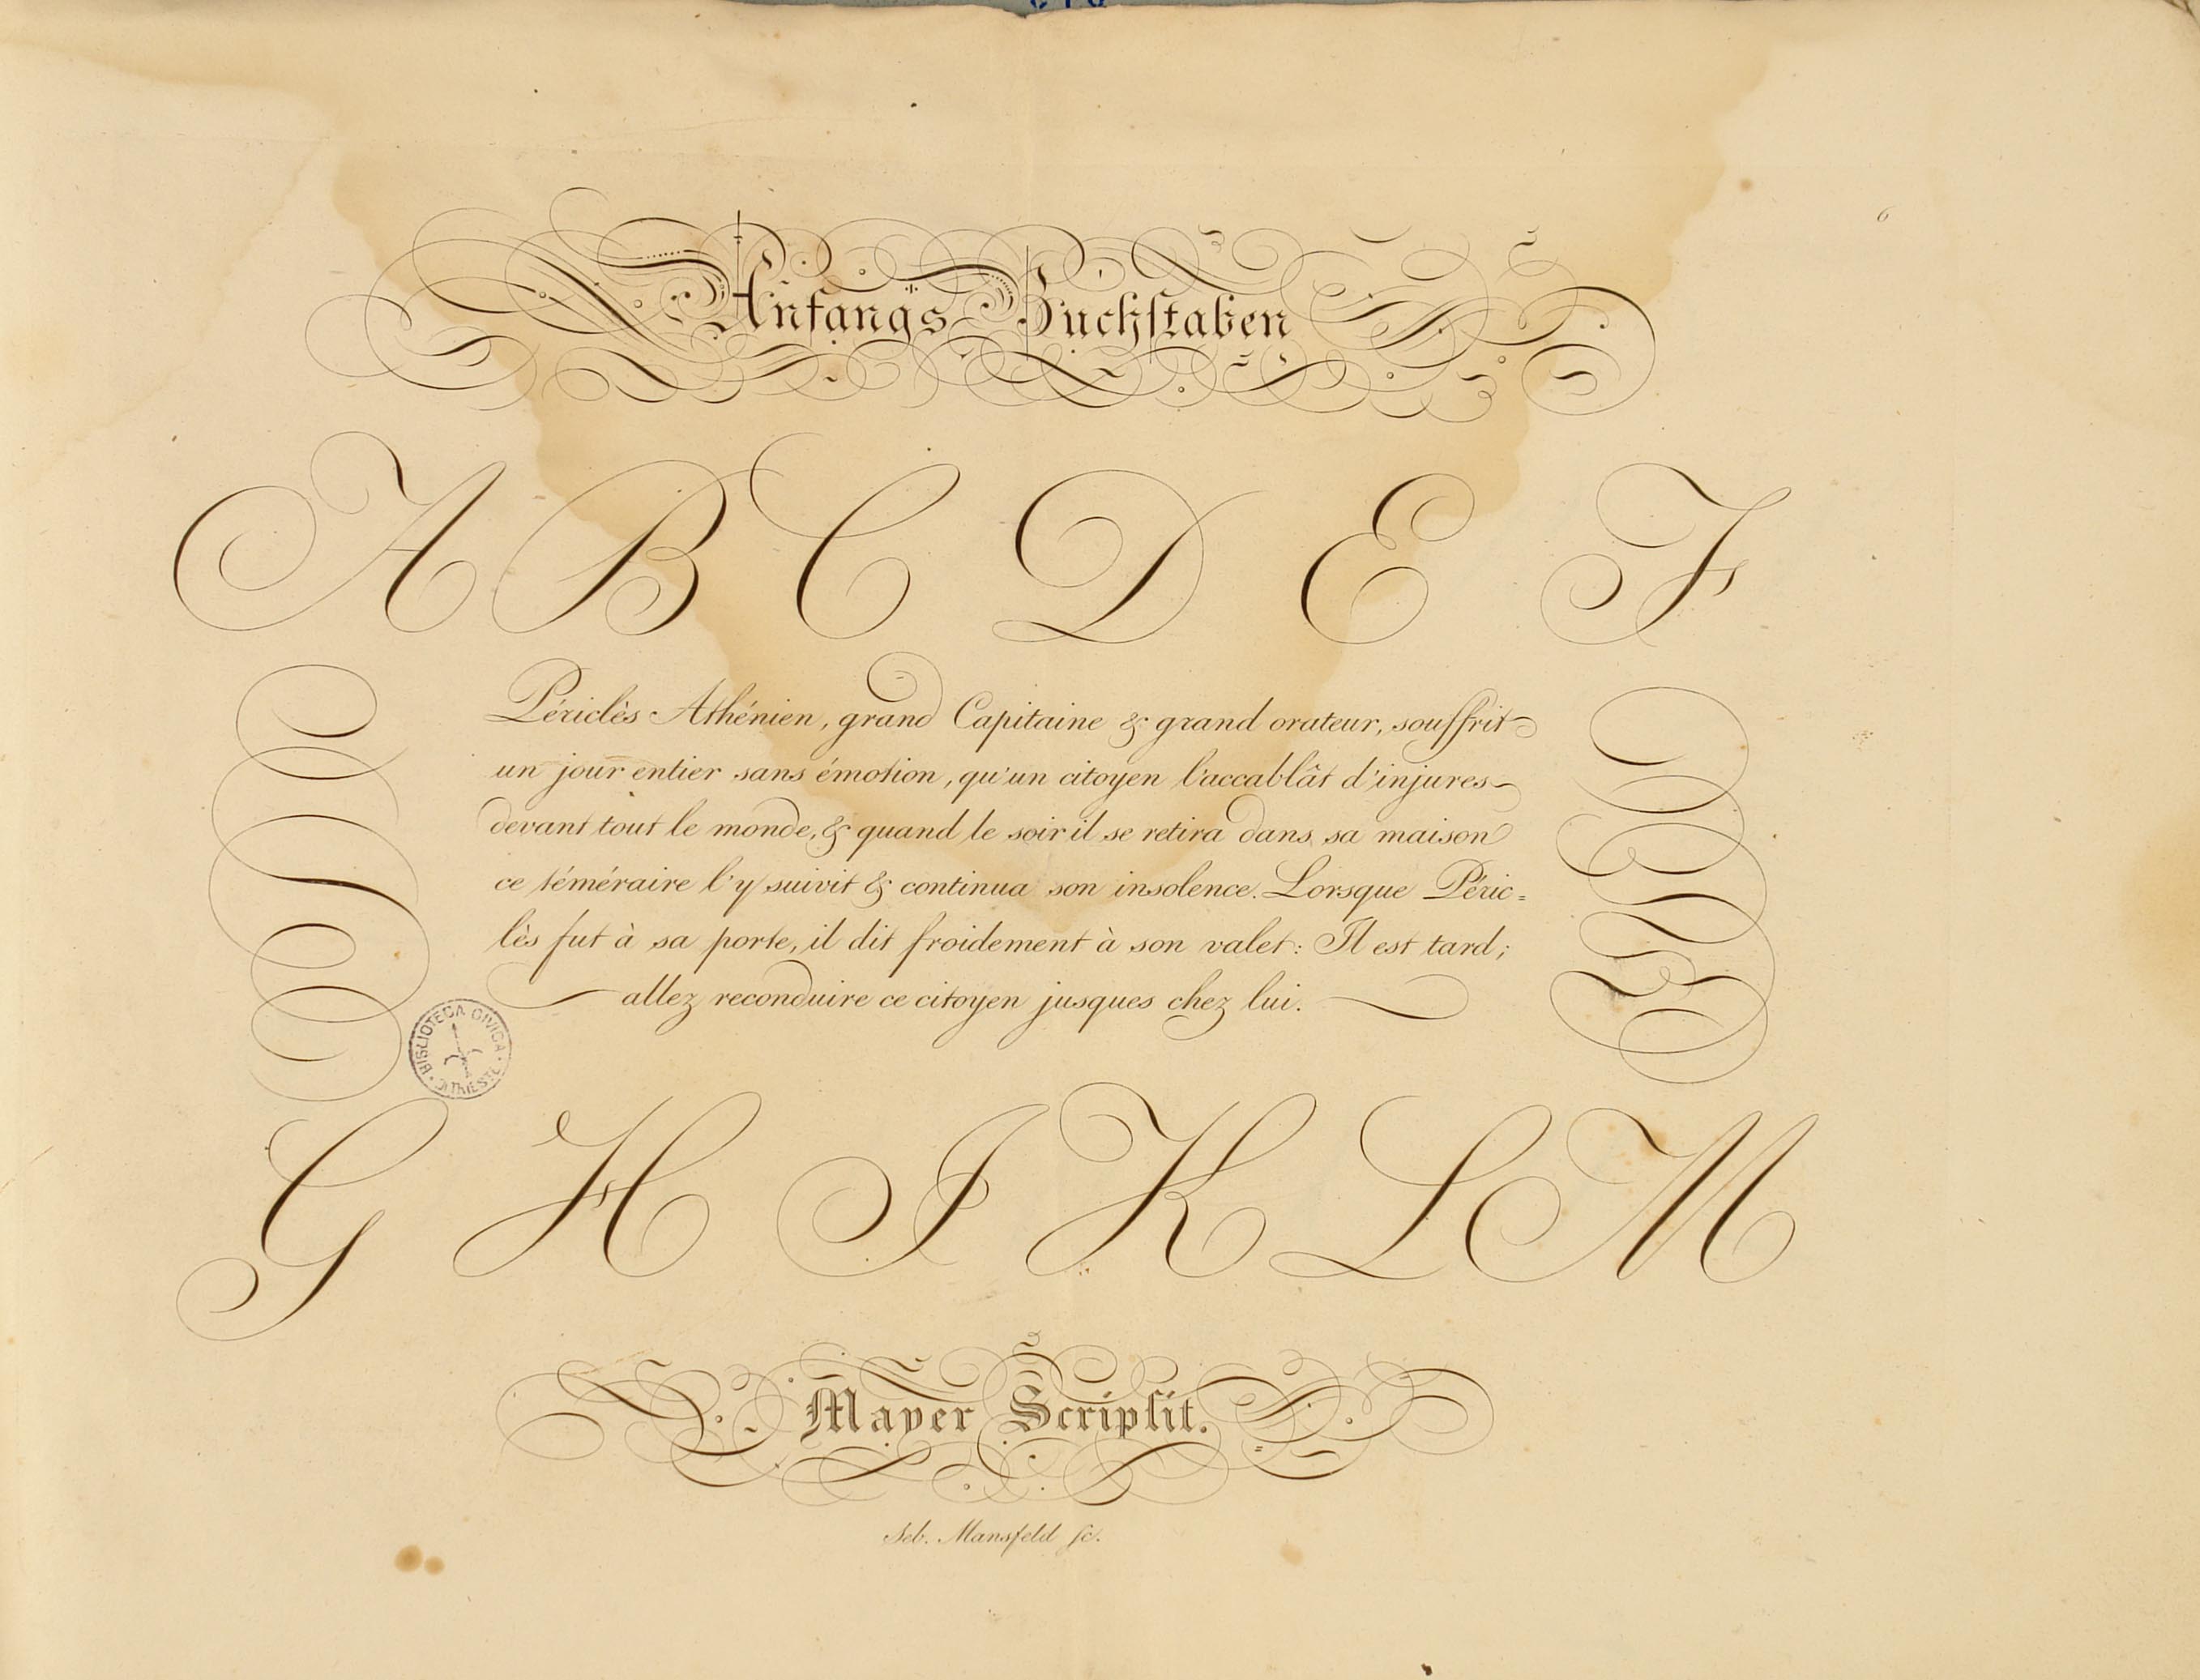 6
Anfangs Buchſtaben
A B C D E F
Périclès Athénien, grand Capitaine & grand orateur, souffrit
un jour entier sans émotion, qu'un citoyen l'accablât d'injures
devant tout le monde, & quand le soir il se retira dans sa maison
ce téméraire l'y suivit & continua son insolence. Lorsque Péric=
lès fut à sa porte, il dit froidement à son valet: Il est tard;
allez reconduire ce citoyen jusques chez lui.
BIBLIOTECA CIVICA · DI TRIESTE ·
G H I K L M
Mayer Scripſit.
Seb. Mansfeld ſc.